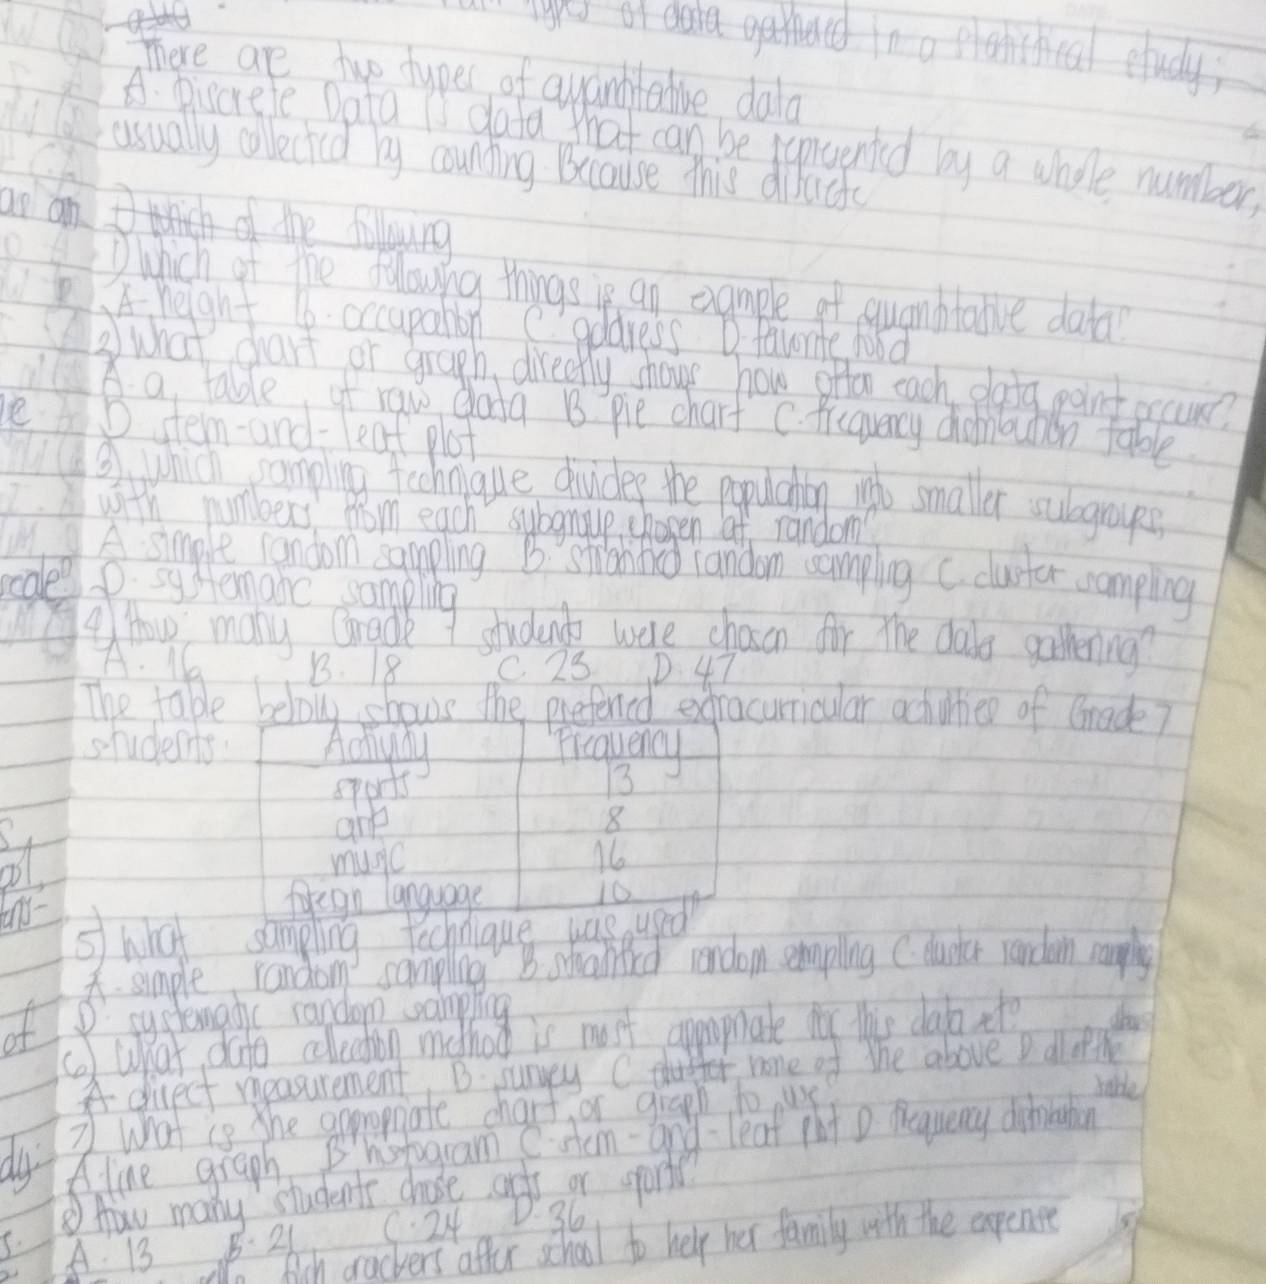 types of data gathered in a statistical study;
There are two types of quantitative data
A. Discrete Data is data that can be represented by a whole number,
usually collected by counting. Because this discrete
1) Which of the following
1) Which of the following things is an example of quantitative data?
A- height B. occupation C. address D. favorite food
2) What chart or graph, directly shows how often each data point occurs?
A- a table of raw data B pie chart C. frequency distribution table
D stem-and-leaf plot
3) Which sampling technique divides the population into smaller subgroups,
with numbers from each subgroup chosen at random?
A simple random sampling B. stratified random sampling C. cluster sampling
D. systematic sampling
4) How many Grade 7 students were chosen for the data gathering?
A. 16 B. 18 C. 23 D. 47
The table below shows the preferred extracurricular activities of Grade 7
students.
Activity Frequency
sports 13
art 8
music 16
foreign language 10
5) What sampling technique was used?
A. simple random sampling B. stratified random sampling C. cluster random sampling
D. systematic random sampling
6) What data collection method is most appropriate for this data set?
A- direct measurement B. survey C none of the above D all of the
7) What is the appropriate chart or graph to use
A. line graph B histogram C. stem-and-leaf plot D frequency distribution
table
8) How many students chose arts or sports?
A. 13 B. 21 C. 24 D. 36
crackers after school to help her family with the expense